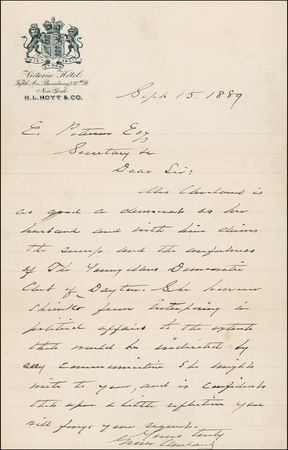 Victoria Hotel,
Fifth Ave. Broadway & 27th St.
New York
H. L. HOYT & CO.
Sept 15. 1889
E. Esq
Secretary &c
Dear Sir:
Mrs Cleveland is
as good a democrat as her
husband and with him
the and the usefulness
of The Young Mens Democratic
Club of Dayton. She however
shrinks from in
political affairs to the extent
that would be indicated by
any communication she might
write to you, and is confident
that upon a little reflection you
will forego your request.
Yours truly
Grover Cleveland